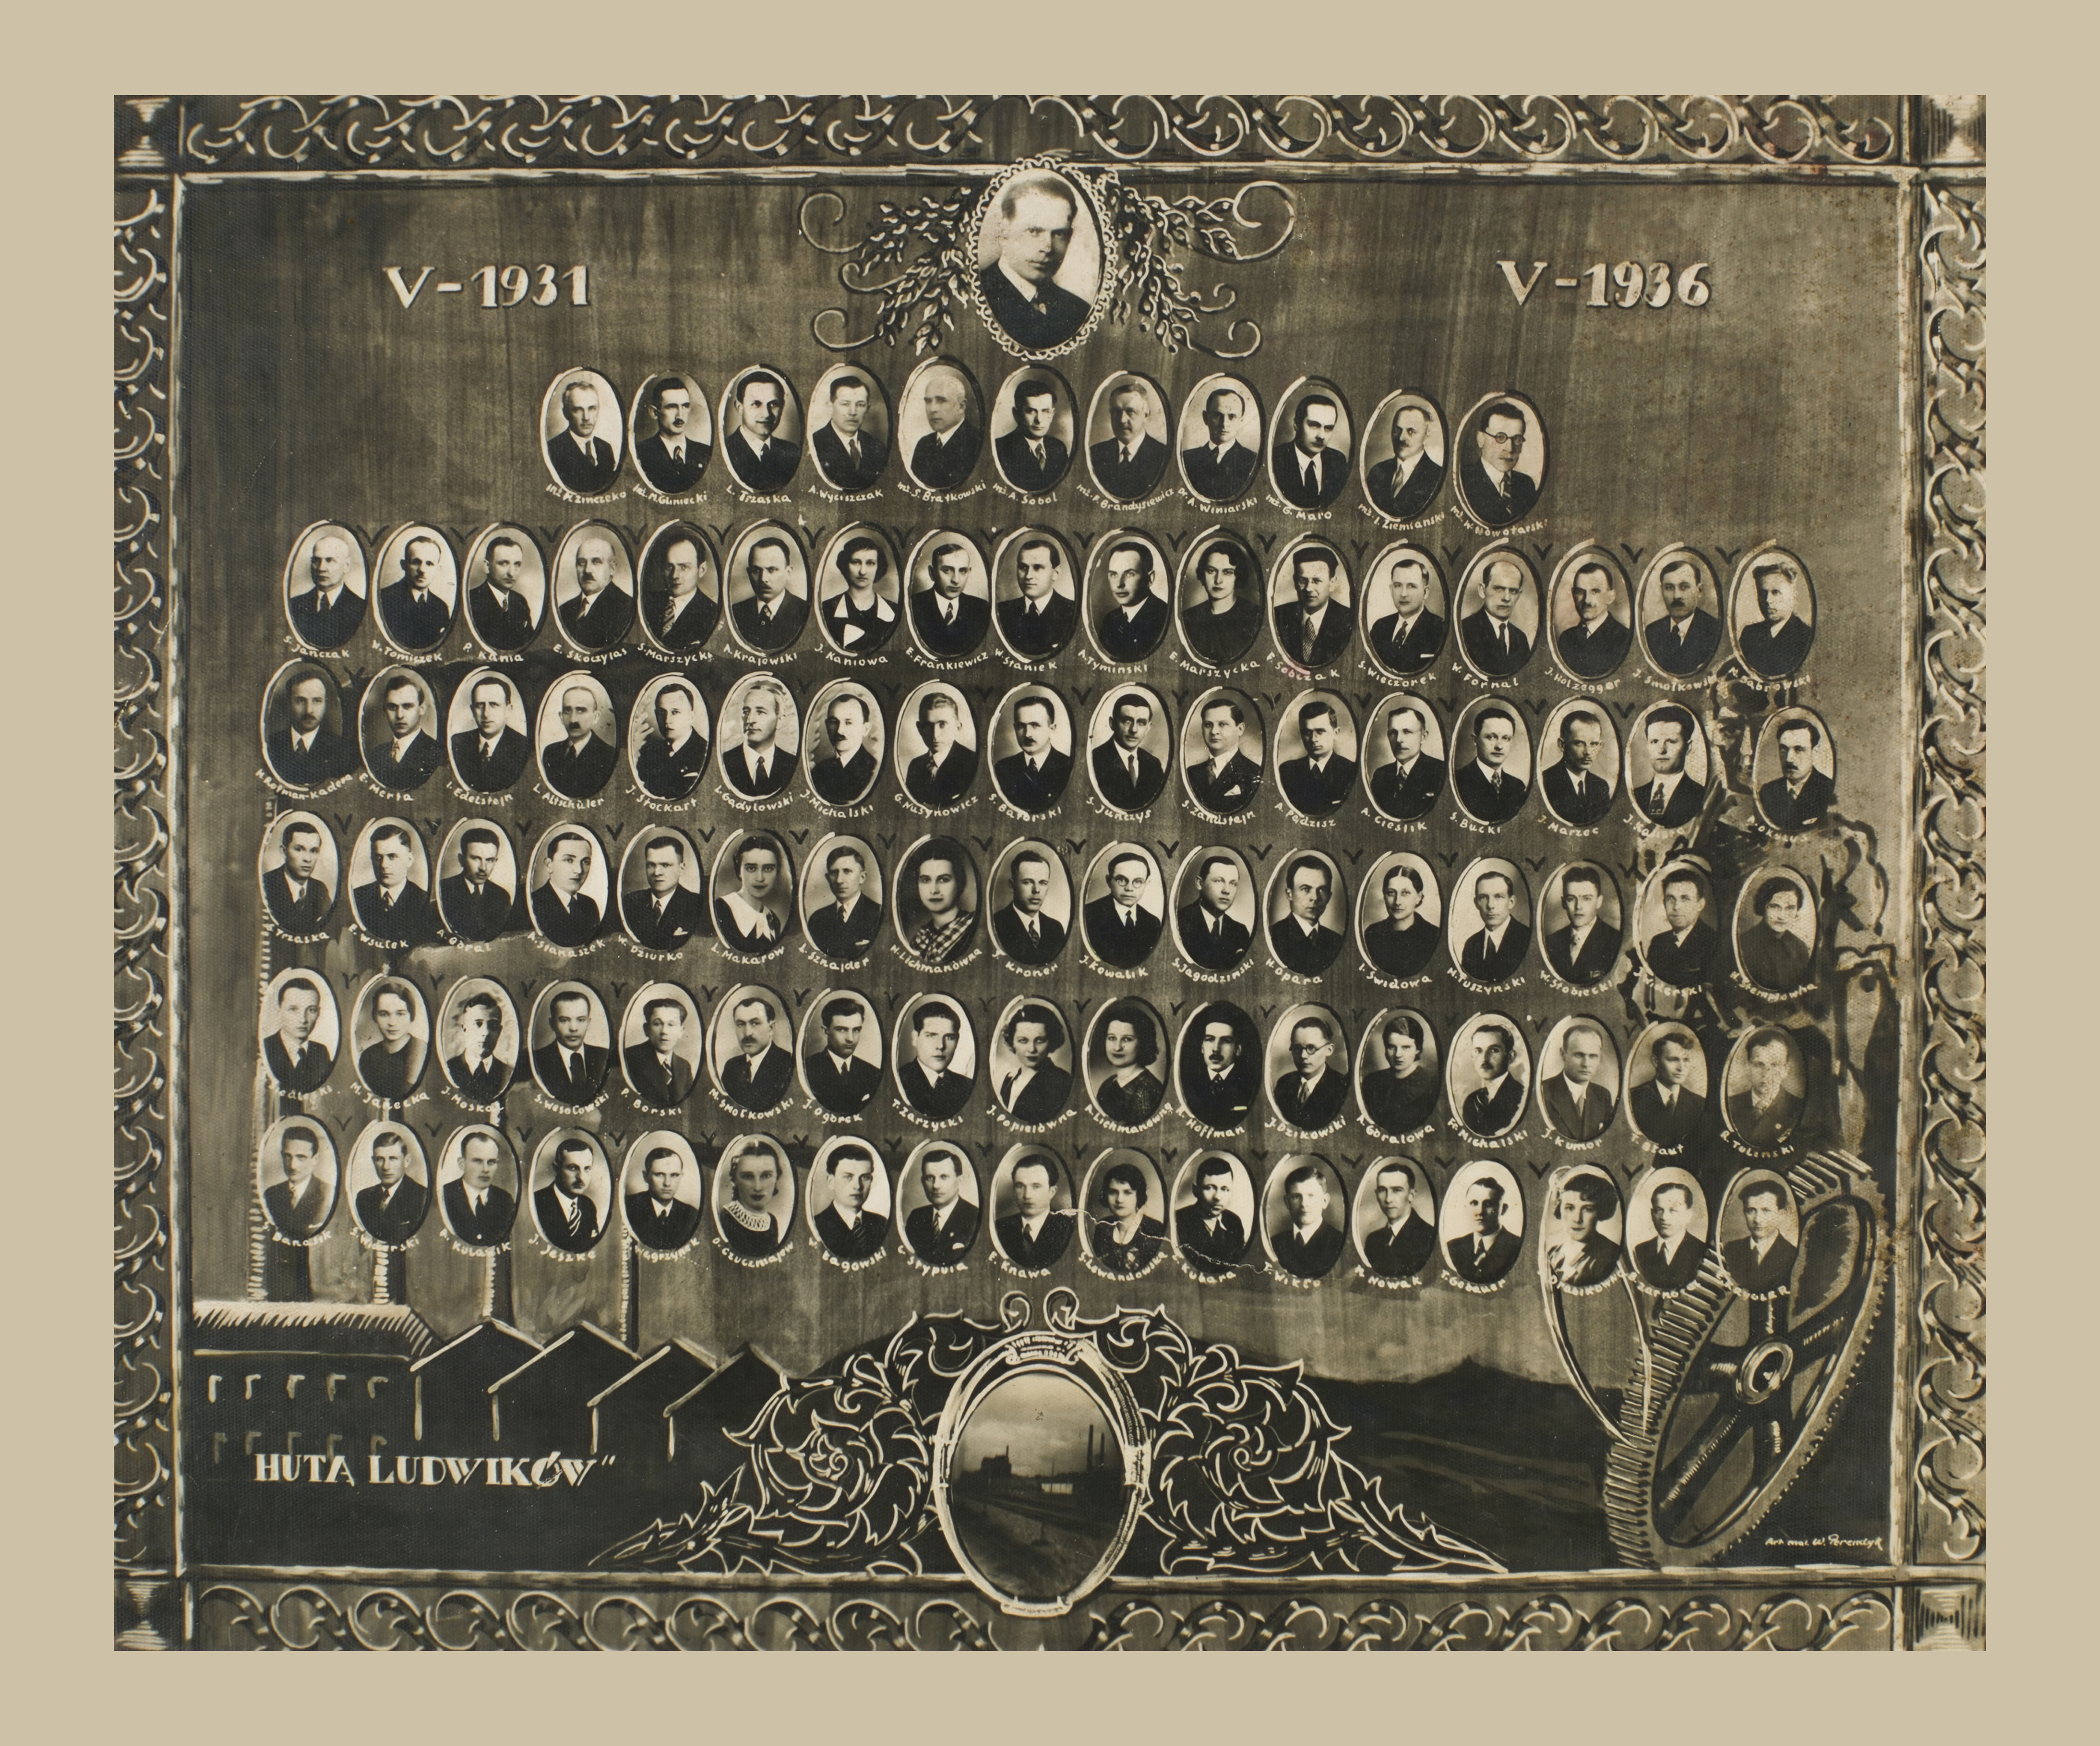 V-1931 V-1936
inż. M. Gliniecki L. Trzaska A. Wyciszczak inż. S. Bratkowski inż. A. Sobol inż. F. Brandysiewicz dr. A. Winiarski inż. G. Maro inż. I. Ziemiański inż. W. Nowotarski
S. Jańczak W. Tomiszek P. Kania E. Skoczylas S. Marszycki A. Krajewski J. Kaniowa E. Frankiewicz W. Staniek A. Tymiński E. Marszycka F. Sobczak S. Wieczorek W. Fornal J. Holzegger J. Smołkowski M. Dąbrowski
H. Rotman-Kadera E. Merta I. Edelstejn L. Altschüler J. Stockart L. Gadylowski J. Michalski G. Husynowicz S. Batorski S. Junczys S. Zandstejn A. Padzisz A. Cieślik S. Bucki J. Marzec
Trzaska E. Wsułek A. Góral A. Stanaszek W. Dziurko L. Makarow Sznajder H. Lichmanówna Kroner J. Kowalik S. Jagodziński H. Opara I. Świdowa M. Tuszyński W. Słobiecki
M. Janecka J. Moskal S. Wesołowski P. Borski M. Smołkowski J. Ogórek T. Zarzycki J. Popielówna A. Lichmanówna Hoffman J. Dzikowski K. Góralowa Fr. Michalski J. Kumor R. Toliński
Banasik J. Jeszke Łagowski Strypuła F. Knawa S. Lewandowska Kubara M. Nowak T. Gebauer
HUTA LUDWIKÓW"
Art. mal. W.